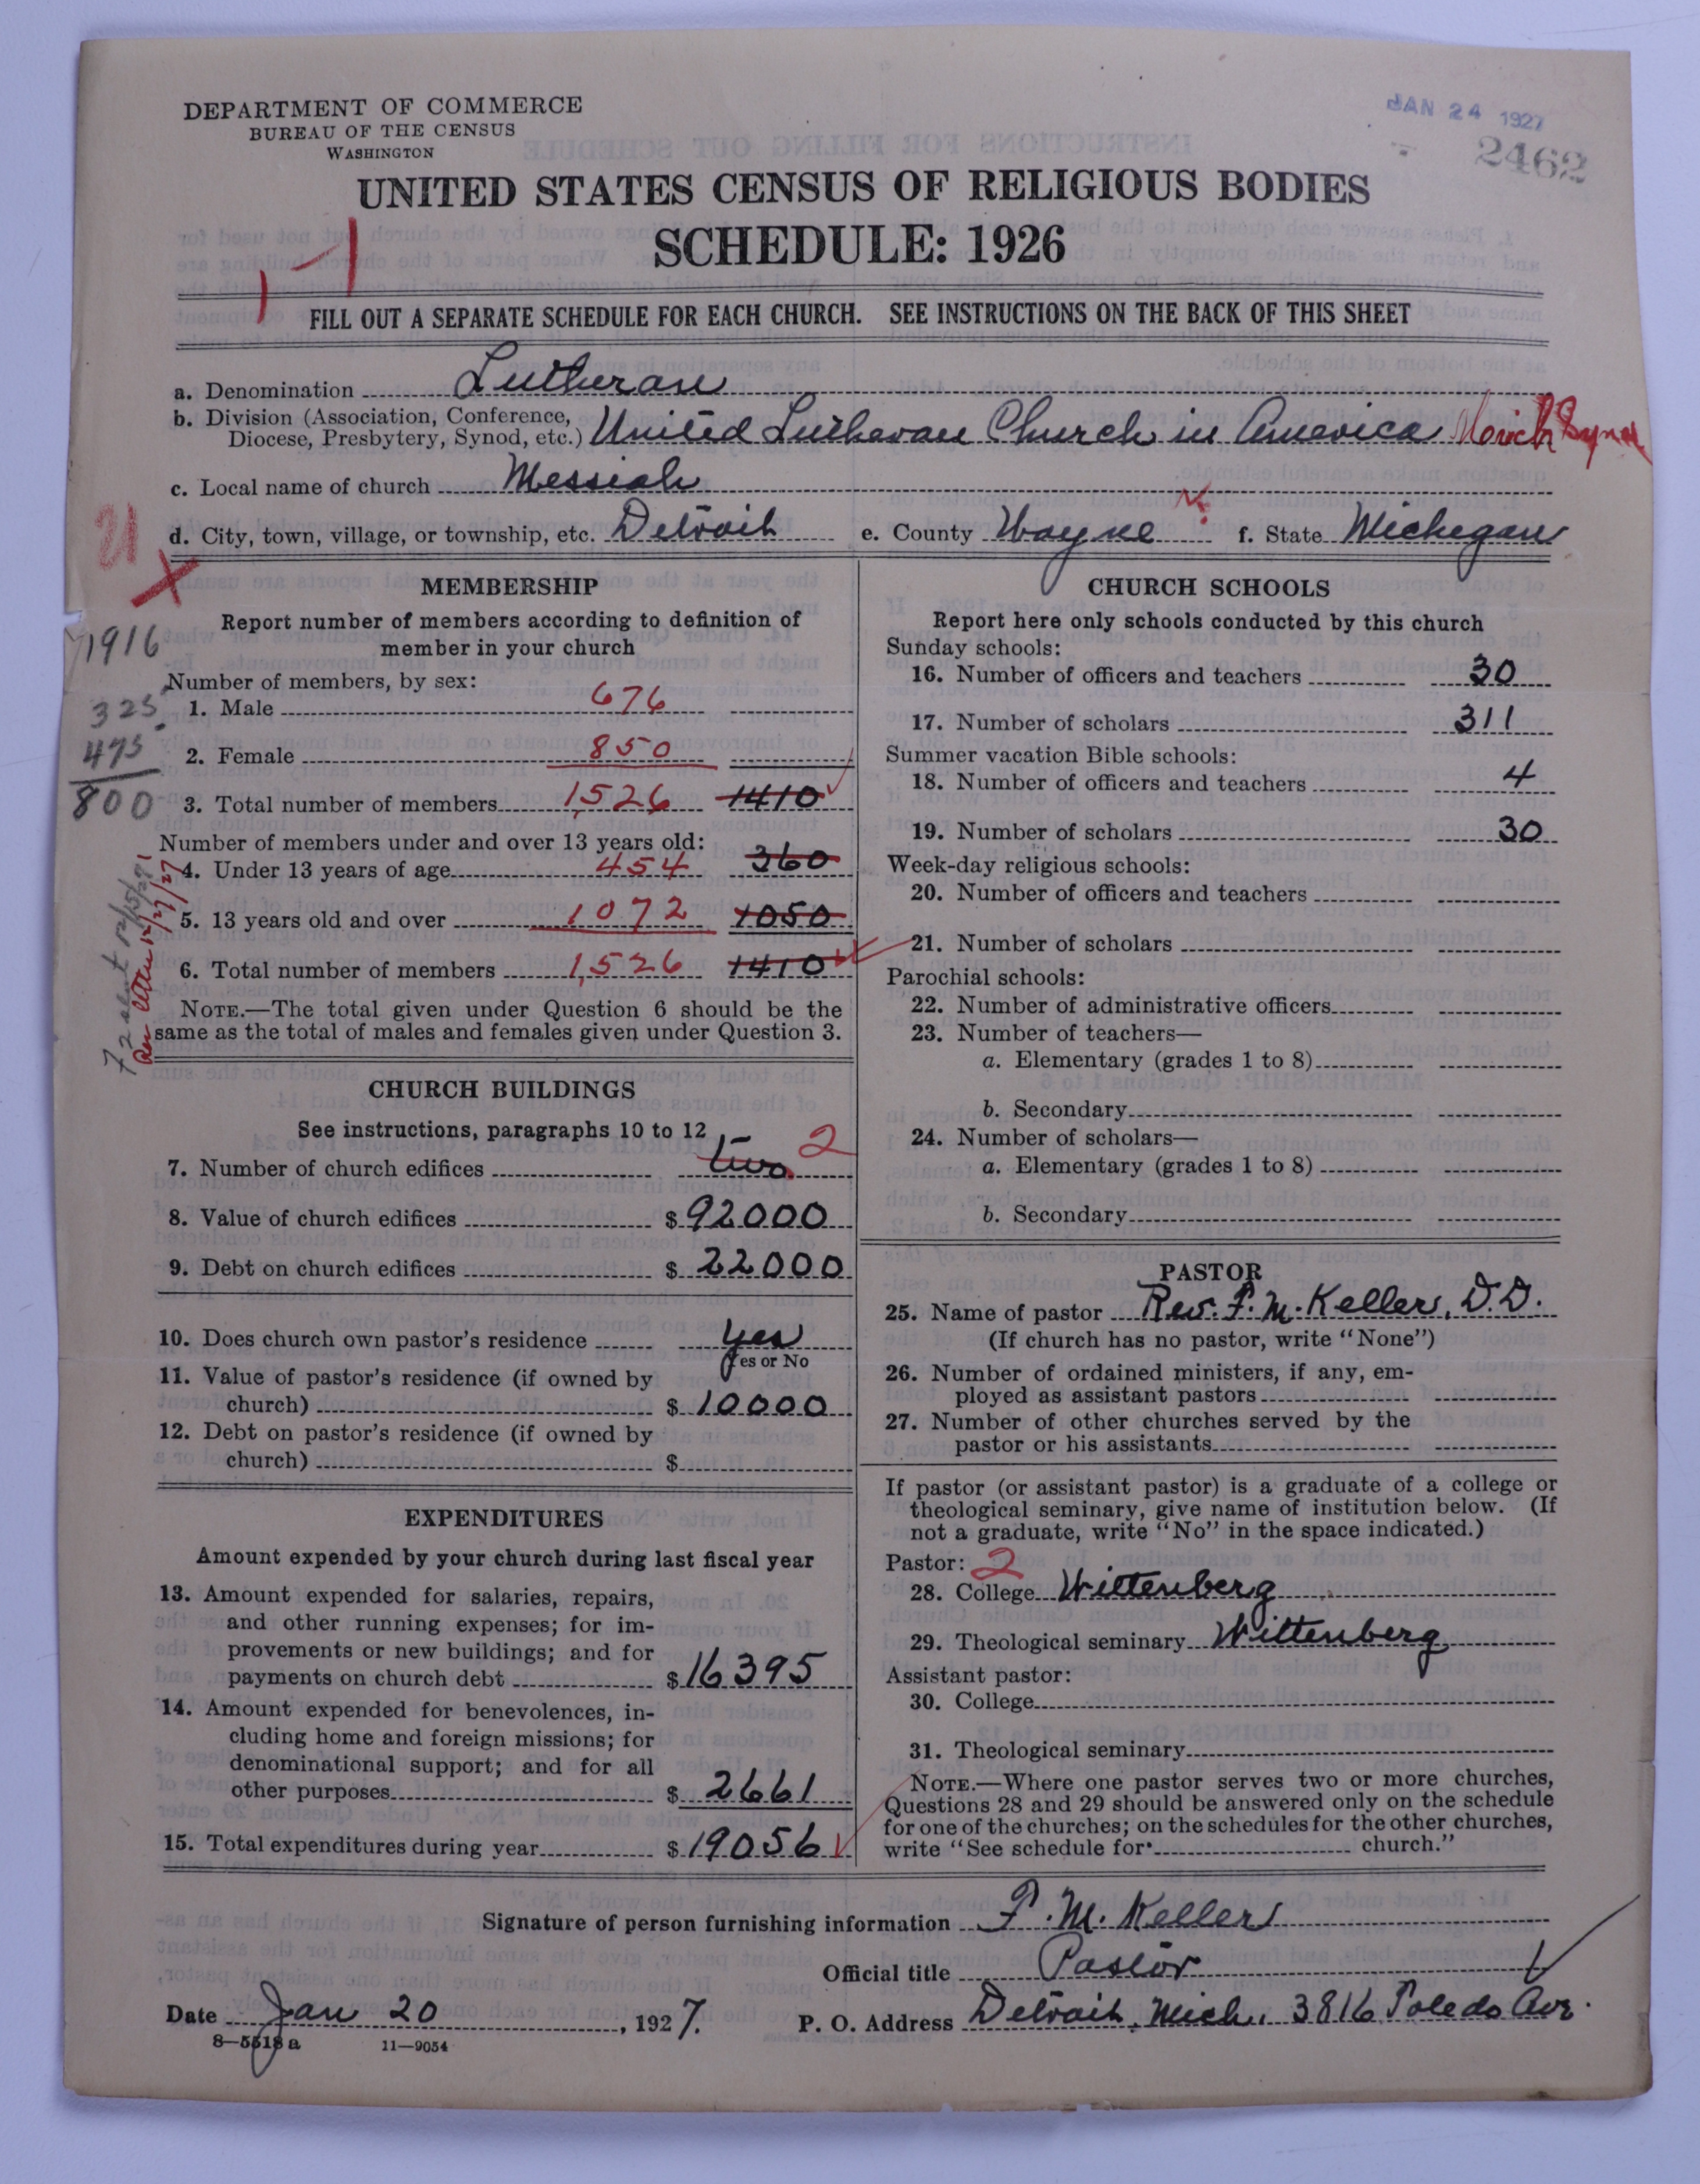 DEPARTMENT OF COMMERCE
BUREAU OF THE CENSUS
WASHINGTON
JAN 24 1927
2462
UNITED STATES CENSUS OF RELIGIOUS BODIES
SCHEDULE: 1926
FILL OUT A SEPARATE SCHEDULE FOR EACH CHURCH. SEE INSTRUCTIONS ON THE BACK OF THIS SHEET
a. Denomination Lutheran
b. Division (Association, Conference, Diocese, Presbytery, Synod, etc.) United Lutheran Church in America Mich Synod
c. Local name of church Messiah
d. City, town, village, or township, etc. Detroit e. County Wayne f. State Michegan
21
MEMBERSHIP
Report number of members according to definition of
member in your church
1916
Number of members, by sex:
325 1. Male 676
475 2. Female 850
800 3. Total number of members 1,526 1410
Number of members under and over 13 years old:
4. Under 13 years of age 454 360
5. 13 years old and over 1072 1050
6. Total number of members 1,526 1410
per letter 12/27/27
NOTE.—The total given under Question 6 should be the
same as the total of males and females given under Question 3.
CHURCH BUILDINGS
See instructions, paragraphs 10 to 12
7. Number of church edifices two 2
8. Value of church edifices $ 92000
9. Debt on church edifices $ 22000
10. Does church own pastor's residence yes
Yes or No
11. Value of pastor's residence (if owned by
church) $ 10000
12. Debt on pastor's residence (if owned by
church) $
EXPENDITURES
Amount expended by your church during last fiscal year
13. Amount expended for salaries, repairs,
and other running expenses; for im-
provements or new buildings; and for
payments on church debt $ 16395
14. Amount expended for benevolences, in-
cluding home and foreign missions; for
denominational support; and for all
other purposes $ 2661
15. Total expenditures during year $ 19056
CHURCH SCHOOLS
Report here only schools conducted by this church
Sunday schools:
16. Number of officers and teachers 30
17. Number of scholars 311
Summer vacation Bible schools:
18. Number of officers and teachers 4
19. Number of scholars 30
Week-day religious schools:
20. Number of officers and teachers
21. Number of scholars
Parochial schools:
22. Number of administrative officers
23. Number of teachers—
a. Elementary (grades 1 to 8)
b. Secondary
24. Number of scholars—
a. Elementary (grades 1 to 8)
b. Secondary
PASTOR
25. Name of pastor Rev. F. M. Keller, D.D.
(If church has no pastor, write "None")
26. Number of ordained ministers, if any, em-
ployed as assistant pastors
27. Number of other churches served by the
pastor or his assistants
If pastor (or assistant pastor) is a graduate of a college or
theological seminary, give name of institution below. (If
not a graduate, write "No" in the space indicated.)
Pastor: 2
28. College Wittenberg
29. Theological seminary Wittenberg
Assistant pastor:
30. College
31. Theological seminary
NOTE.—Where one pastor serves two or more churches,
Questions 28 and 29 should be answered only on the schedule
for one of the churches; on the schedules for the other churches,
write "See schedule for church."
Signature of person furnishing information F. M. Keller
Official title Pastor
Date Jan 20, 1927. P. O. Address Detroit, Mich. 3816 Toledo Ave.
8—5518a 11—9054